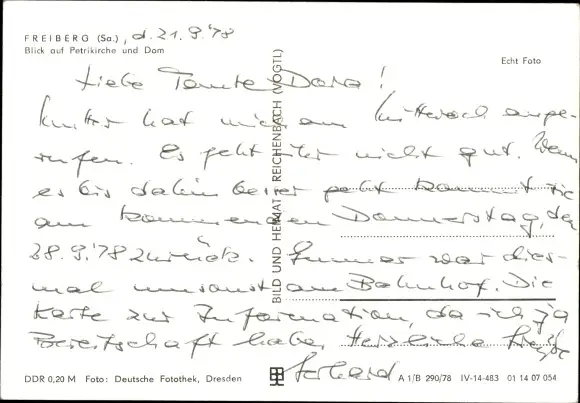 FREIBERG (Sa.), d. 21.9.'78
Blick auf Petrikirche und Dom
Echt Foto
Liebe Tante Dora!
Mutter hat mich am Mittwoch ange-
rufen. Es geht ihr nicht gut. Wenn
es bis dahin besser geht kommt sie
am kommenden Donnerstag, den
28.9.'78 zurück. war dies-
mal umsonst am Bahnhof. Die
Karte zur Information, da ich ja
Bereitschaft habe. Herzliche Grüße
Gerhard
BILD UND HEIMAT REICHENBACH (VOGTL)
DDR 0,20 M Foto: Deutsche Fotothek, Dresden
A 1/B 290/78 IV-14-483 01 14 07 054